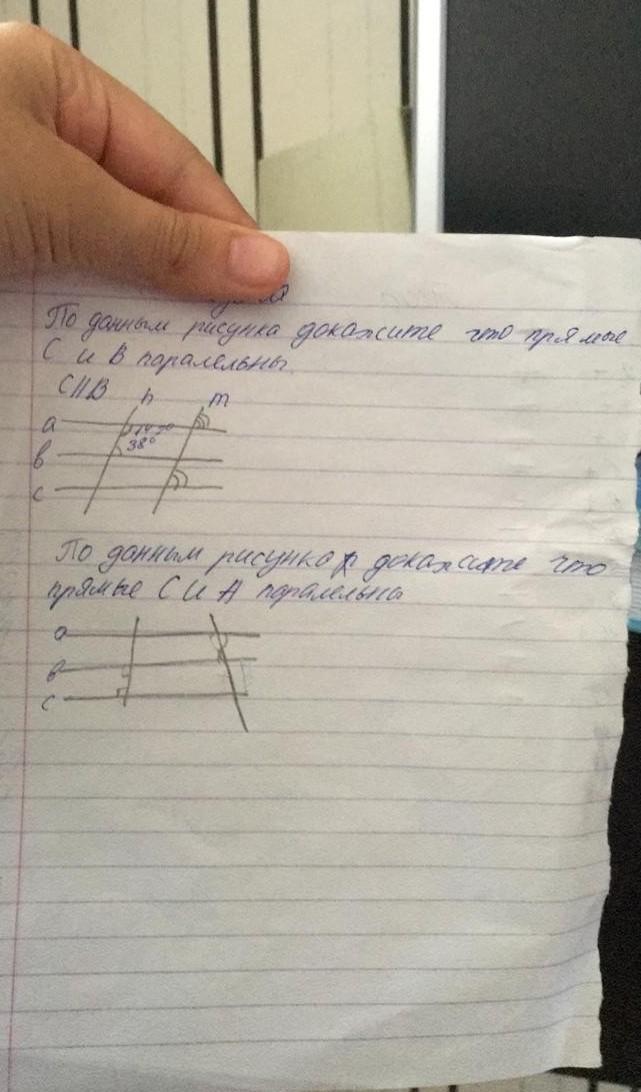 По данным рисунка докажите что прямые
С и В паралельны
С||В
n m
a
38°
в
с
По данным рисунка докажите что
прямые С и А паралельны
a
в
с